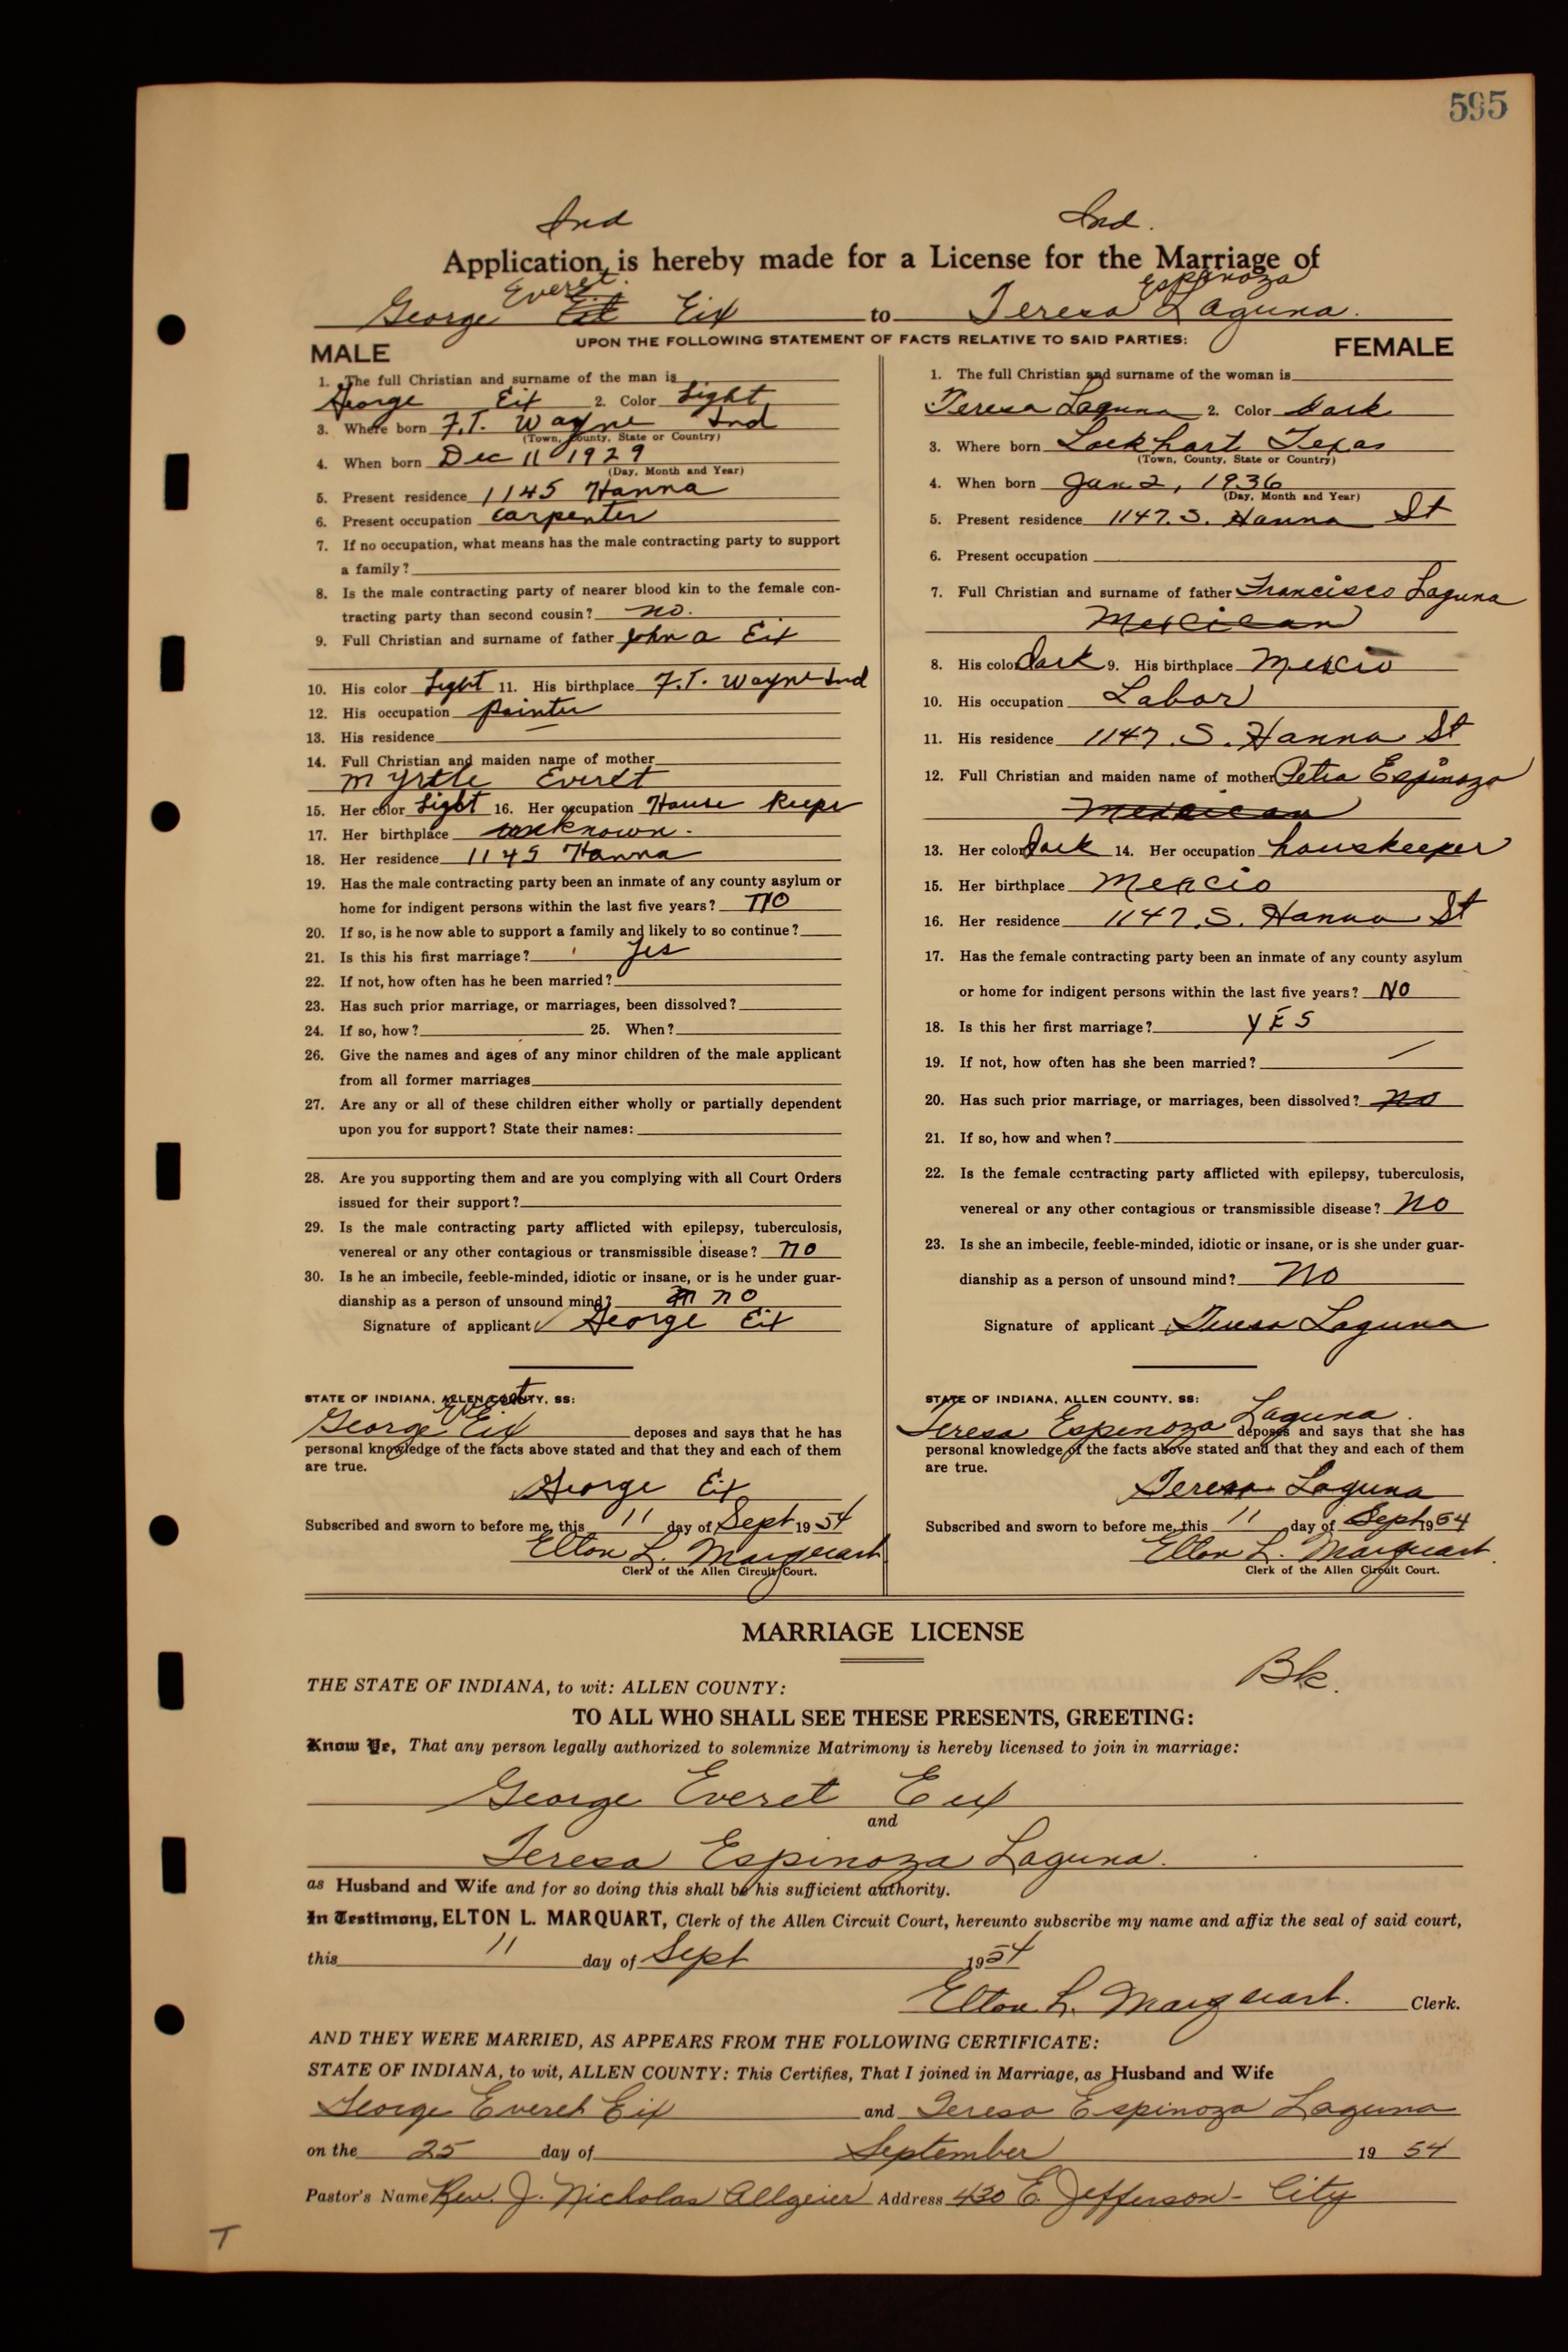 595
Ind Ind.
Application is hereby made for a License for the Marriage of
Everet Espinoza
George Eix to Teresa Laguna.
UPON THE FOLLOWING STATEMENT OF FACTS RELATIVE TO SAID PARTIES:
MALE
1. The full Christian and surname of the man is
George Eix 2. Color Light
3. Where born F.T. Wayne Ind
(Town, County, State or Country)
4. When born Dec 11 1929
(Day, Month and Year)
5. Present residence 1145 Hanna
6. Present occupation Carpenter
7. If no occupation, what means has the male contracting party to support
a family?
8. Is the male contracting party of nearer blood kin to the female con-
tracting party than second cousin? no.
9. Full Christian and surname of father John a Eix
10. His color Light 11. His birthplace F.T. Wayne Ind
12. His occupation painter
13. His residence
14. Full Christian and maiden name of mother
Myrtle Everet
15. Her color Light 16. Her occupation House Keepr
17. Her birthplace unknown.
18. Her residence 1145 Hanna
19. Has the male contracting party been an inmate of any county asylum or
home for indigent persons within the last five years? no
20. If so, is he now able to support a family and likely to so continue?
21. Is this his first marriage? Yes
22. If not, how often has he been married?
23. Has such prior marriage, or marriages, been dissolved?
24. If so, how? 25. When?
26. Give the names and ages of any minor children of the male applicant
from all former marriages
27. Are any or all of these children either wholly or partially dependent
upon you for support? State their names:
28. Are you supporting them and are you complying with all Court Orders
issued for their support?
29. Is the male contracting party afflicted with epilepsy, tuberculosis,
venereal or any other contagious or transmissible disease? no
30. Is he an imbecile, feeble-minded, idiotic or insane, or is he under guar-
dianship as a person of unsound mind? no
Signature of applicant George Eix
STATE OF INDIANA, ALLEN COUNTY, SS:
Everet
George Eix deposes and says that he has
personal knowledge of the facts above stated and that they and each of them
are true.
George Eix
Subscribed and sworn to before me, this 11 day of Sept 1954
Elton L. Marquart
Clerk of the Allen Circuit Court.
FEMALE
1. The full Christian and surname of the woman is
Teresa Laguna 2. Color Dark
3. Where born Lockhart Texas
(Town, County, State or Country)
4. When born Jan 2, 1936
(Day, Month and Year)
5. Present residence 1147. S. Hanna St
6. Present occupation
7. Full Christian and surname of father Francisco Laguna
Mexican
8. His color Dark 9. His birthplace Mexcio
10. His occupation Labor
11. His residence 1147 S. Hanna St
12. Full Christian and maiden name of mother Petra Espinoza
Mexican
13. Her color Dark 14. Her occupation houskeeper
15. Her birthplace Mexcio
16. Her residence 1147 S. Hanna St
17. Has the female contracting party been an inmate of any county asylum
or home for indigent persons within the last five years? NO
18. Is this her first marriage? YES
19. If not, how often has she been married?
20. Has such prior marriage, or marriages, been dissolved? no
21. If so, how and when?
22. Is the female contracting party afflicted with epilepsy, tuberculosis,
venereal or any other contagious or transmissible disease? no
23. Is she an imbecile, feeble-minded, idiotic or insane, or is she under guar-
dianship as a person of unsound mind? No
Signature of applicant Teresa Laguna
STATE OF INDIANA, ALLEN COUNTY, SS:
Teresa Espinoza Laguna. deposes and says that she has
personal knowledge of the facts above stated and that they and each of them
are true.
Teresa Laguna
Subscribed and sworn to before me, this 11 day of Sept 1954
Elton L. Marquart.
Clerk of the Allen Circuit Court.
MARRIAGE LICENSE
Bk.
THE STATE OF INDIANA, to wit: ALLEN COUNTY:
TO ALL WHO SHALL SEE THESE PRESENTS, GREETING:
Know Ye, That any person legally authorized to solemnize Matrimony is hereby licensed to join in marriage:
George Everet Eix
and
Teresa Espinoza Laguna.
as Husband and Wife and for so doing this shall be his sufficient authority.
In Testimony, ELTON L. MARQUART, Clerk of the Allen Circuit Court, hereunto subscribe my name and affix the seal of said court,
this 11 day of Sept 1954
Elton L. Marquart. Clerk.
AND THEY WERE MARRIED, AS APPEARS FROM THE FOLLOWING CERTIFICATE:
STATE OF INDIANA, to wit, ALLEN COUNTY: This Certifies, That I joined in Marriage, as Husband and Wife
George Everet Eix and Teresa Espinoza Laguna
on the 25 day of September 1954
Pastor's Name Rev. J. Nicholas Allgeier Address 430 E. Jefferson - City
T